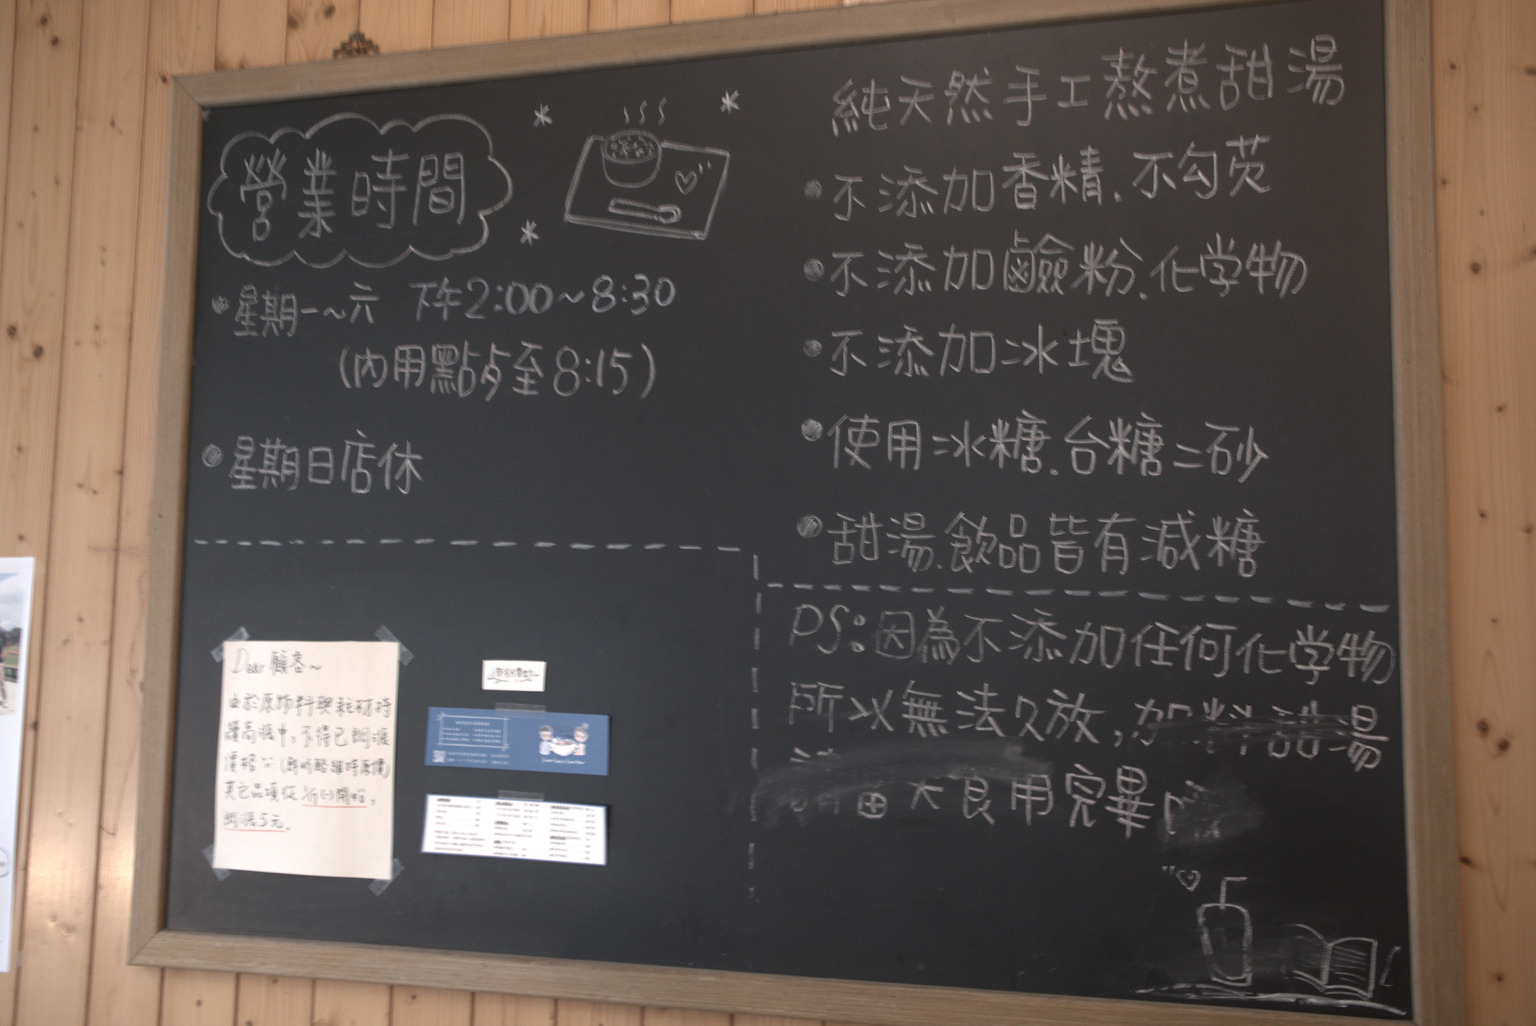 營業時間
星期一~六 下午2:00~8:30
(內用點步至8:15)
星期日店休
純天然手工熬煮甜湯
不添加香精.不勾芡
不添加鹼粉.化学物
不添加冰塊
使用冰糖.台糖二砂
甜湯.飲品皆有減糖
PS:因為不添加任何化学物
所以無法久放,加料甜湯
當天食用完畢
Dear 顧客~
由於原物料與耗材持
續高漲中,不得已調漲
其它品項從
調漲5元。